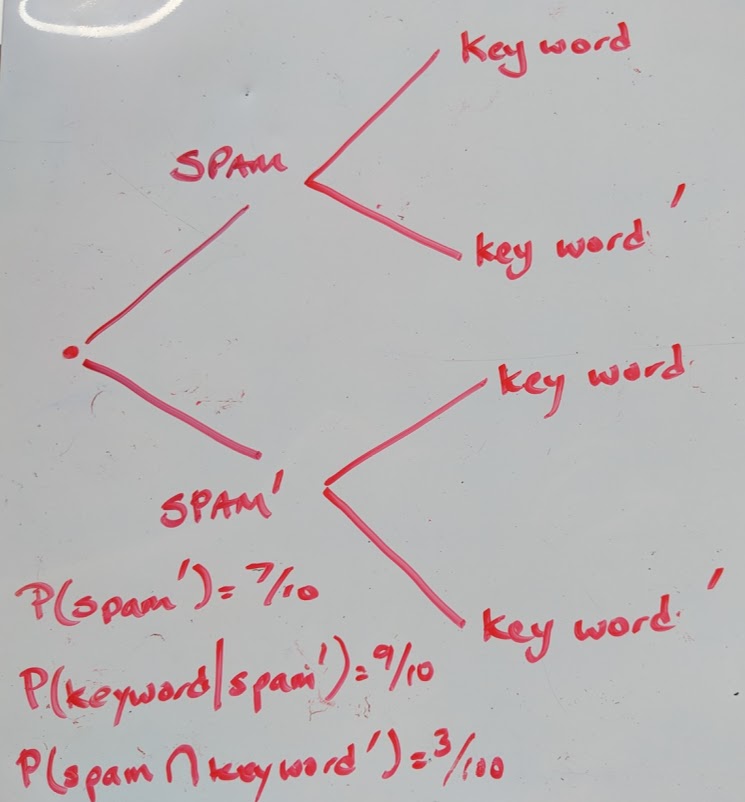 Key word
SPAM
key word '
key word
SPAM'
key word '
P(spam') = 7/10
P(keyword|spam') = 9/10
P(spam ∩ keyword') = 3/100